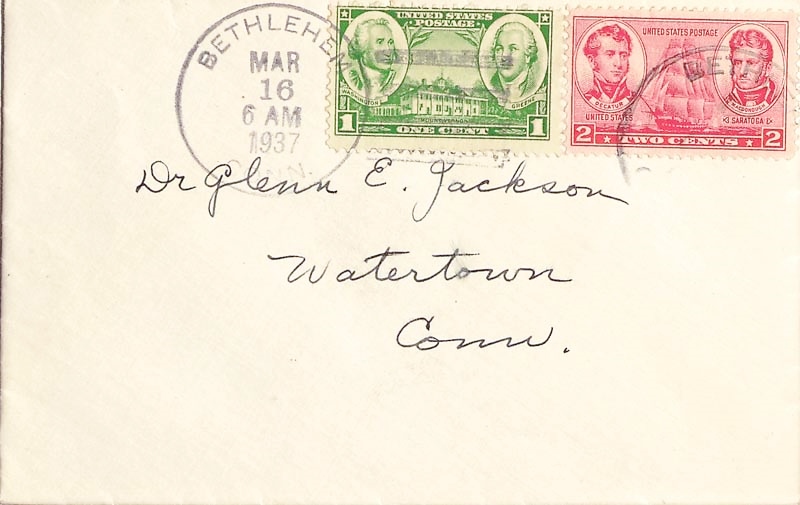 BETHLEHEM
MAR
16
6 AM
1937
CONN.
UNITED STATES
POSTAGE
WASHINGTON
GREENE
MOUNT VERNON
1 ONE CENT 1
UNITED STATES POSTAGE
DECATUR
MACDONOUGH
UNITED STATES
SARATOGA
2 TWO CENTS 2
Dr Glenn E. Jackson
Watertown
Conn.